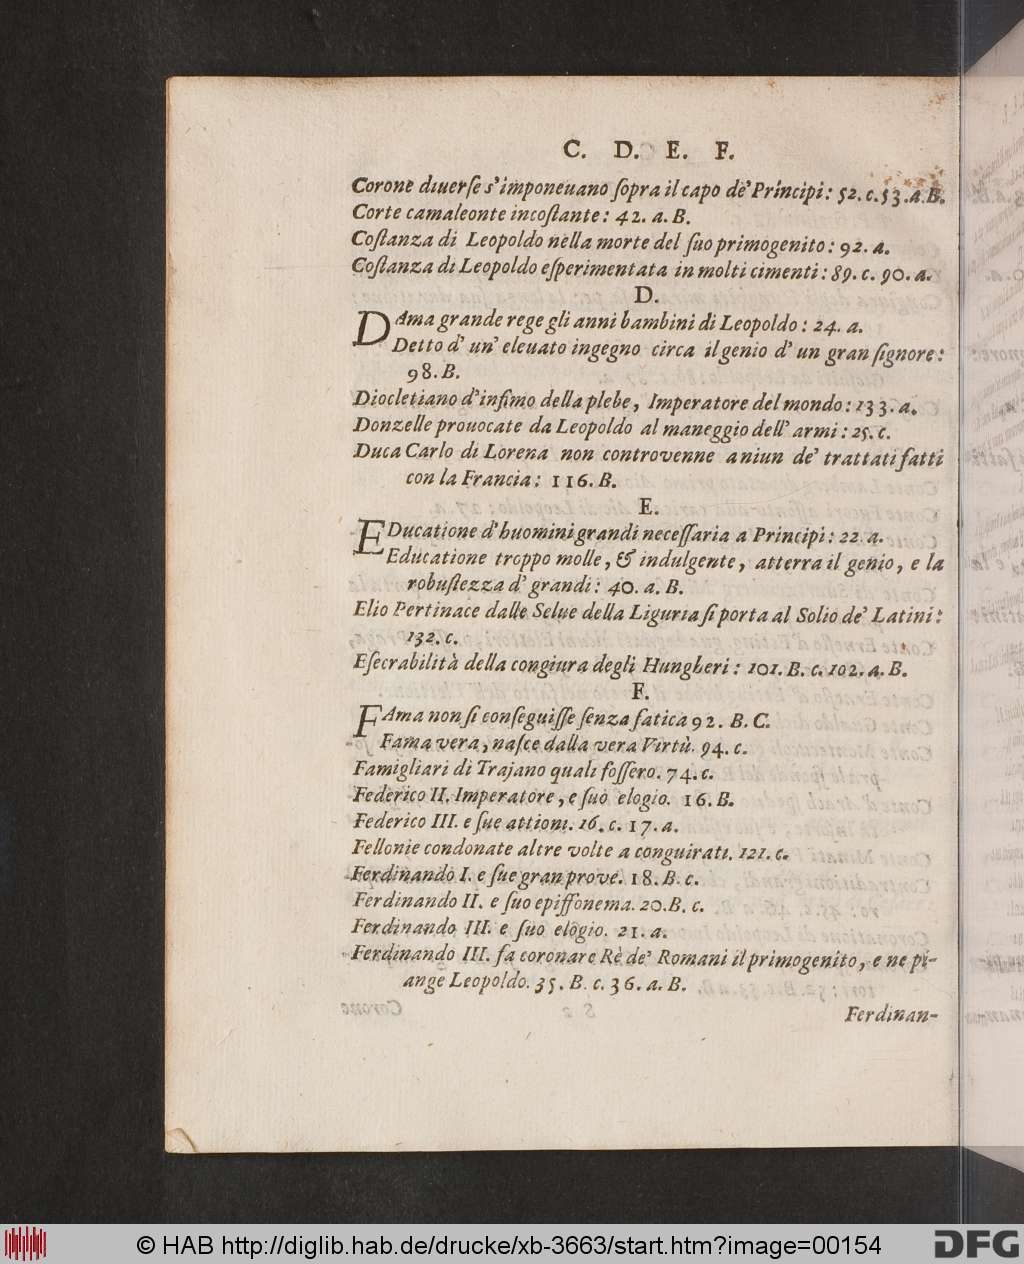 C. D. E. F.
Corone diuerſe s'imponeuano ſopra il capo de' Principi: 52. c. 53. a. B.
Corte camaleonte incoſtante: 42. a. B.
Coſtanza di Leopoldo nella morte del ſuo primogenito: 92. a.
Coſtanza di Leopoldo eſperimentata in molti cimenti: 89. c. 90. a.
D.
DAma grande rege gli anni bambini di Leopoldo: 24. a.
Detto d' un' eleuato ingegno circa il genio d' un gran ſignore:
98. B.
Diocletiano d'infimo della plebe, Imperatore del mondo: 133. a.
Donzelle prouocate da Leopoldo al maneggio dell' armi: 25. c.
Duca Carlo di Lorena non controvenne a niun de' trattati fatti
con la Francia: 116. B.
E.
EDucatione d'huomini grandi neceſſaria a Principi: 22. a.
Educatione troppo molle, & indulgente, atterra il genio, e la
robuſtezza d' grandi: 40. a. B.
Elio Pertinace dalle Selue della Liguria ſi porta al Solio de' Latini:
132. c.
Eſecrabilità della congiura degli Hungheri: 101. B. c. 102. a. B.
F.
FAma non ſi conſeguiſſe ſenza fatica 92. B. C.
Fama vera, naſce dalla vera Virtù. 94. c.
Famigliari di Trajano quali foſſero. 74. c.
Federico II. Imperatore, e ſuo elogio. 16. B.
Federico III. e ſue attioni. 16. c. 17. a.
Fellonie condonate altre volte a conguirati. 121. c.
Ferdinando I. e ſue gran prove. 18. B. c.
Ferdinando II. e ſuo epiffonema. 20. B. c.
Ferdinando III. e ſuo elogio. 21. a.
Ferdinando III. fa coronare Rè de' Romani il primogenito, e ne pi-
ange Leopoldo. 35. B. c. 36. a. B.
Ferdinan-
© HAB http://diglib.hab.de/drucke/xb-3663/start.htm?image=00154
DFG